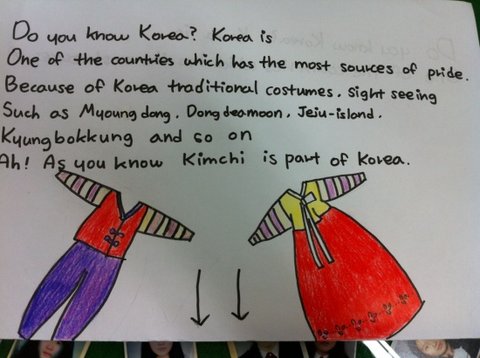 Do you know Korea? Korea is
One of the countries which has the most sources of pride.
Because of Korea traditional costumes. Sight seeing
Such as Myoung dong. Dong deamoon. Jeju-island.
Kyungbokkung and so on
Ah! As you know Kimchi is part of Korea.